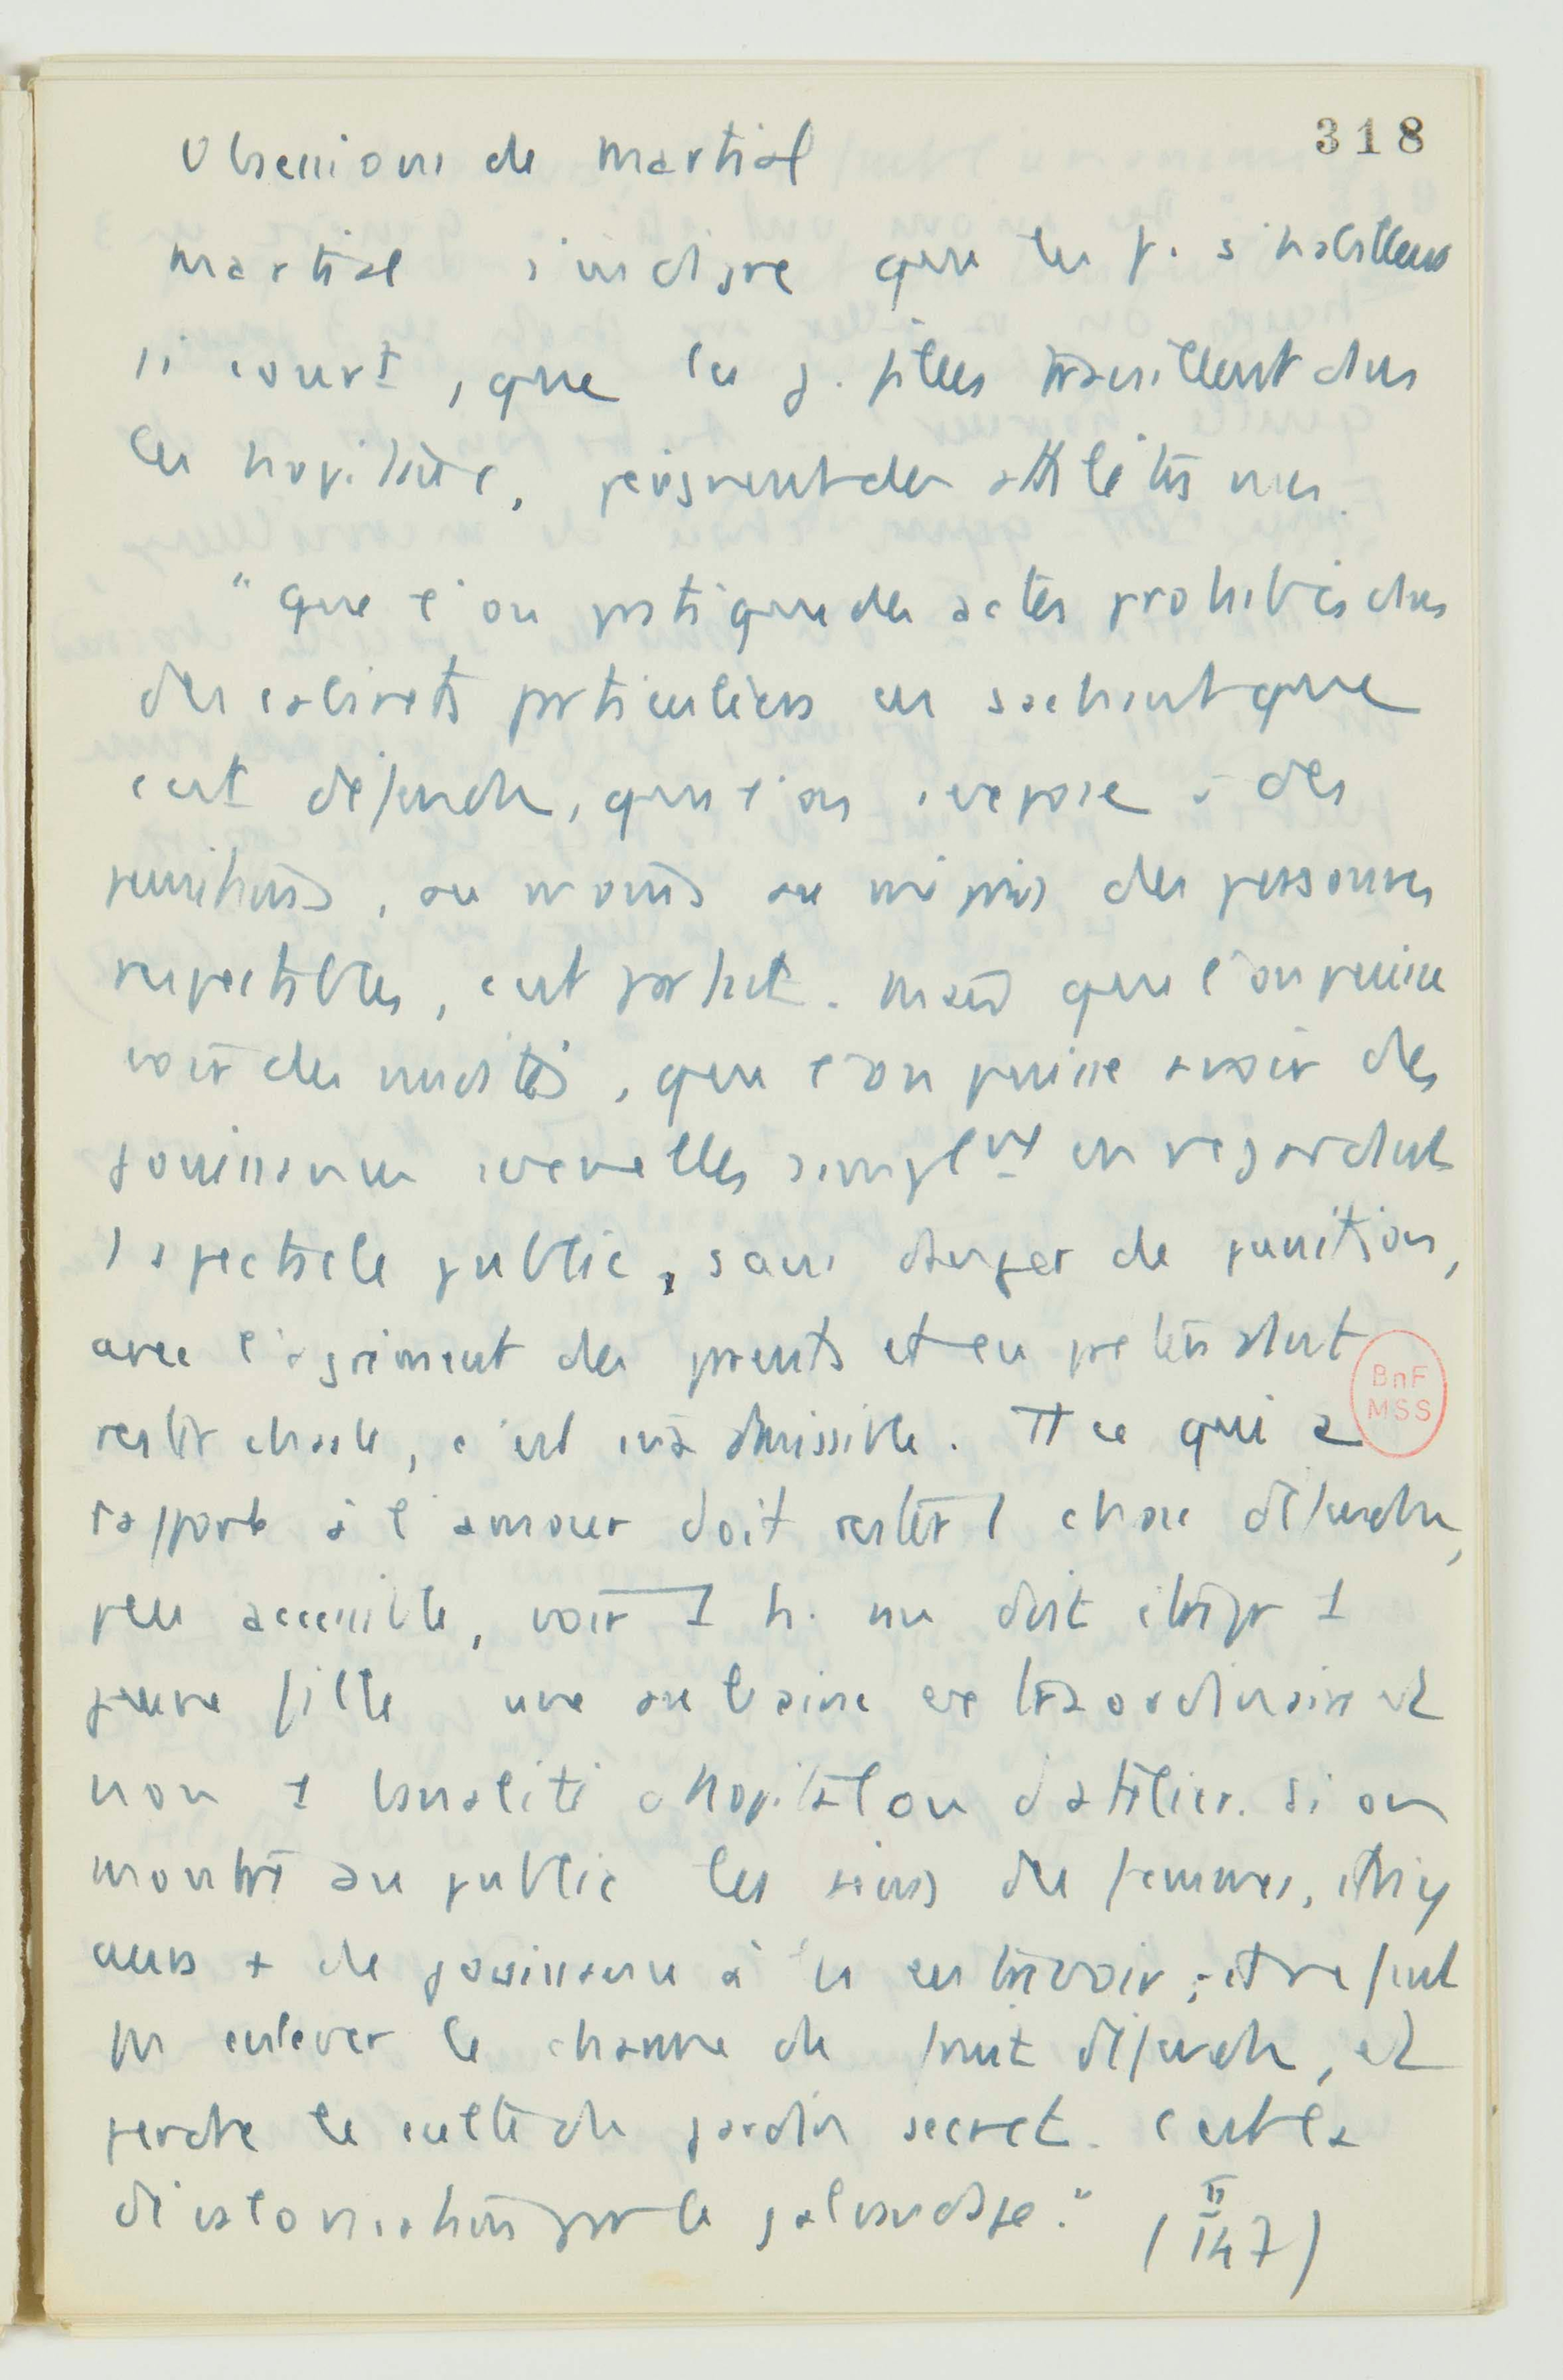 318
Obsessions de Martial
Martial s'indigne que les f. s'habillent
si court, que les j. filles travaillent dans
les hopitaux, peignent des athlètes nus.
"Que l'on pratique des actes prohibés dans
des cabinets particuliers en sachant que
c'est défendu, que l'on s'expose à des
punitions, au moins au mépris des personnes
respectables, c'est parfait. Mais que l'on puisse
voir des nudités, que l'on puisse avoir des
jouissances sexuelles simplᵗ en regardant
1 spectacle public, sans danger de punition,
avec l'agrément des parents et en prétendant
rester chaste, c'est inadmissible. Tt ce qui a
BnF
MSS
rapport à l'amour doit rester 1 chose défendue,
peu accessible, voir 1 h. nu doit être pr 1
jeune fille une aubaine extraordinaire et
non 1 banalité d'hopital ou d'atelier. Si on
montre au public les seins des femmes, il n'y
aura + de jouissance à les entrevoir, et ne faut
pas enlever le charme du fruit défendu, et
perdre le culte du jardin secret. C'est la
dévalorisation par le galvaudage."
( II
147 )